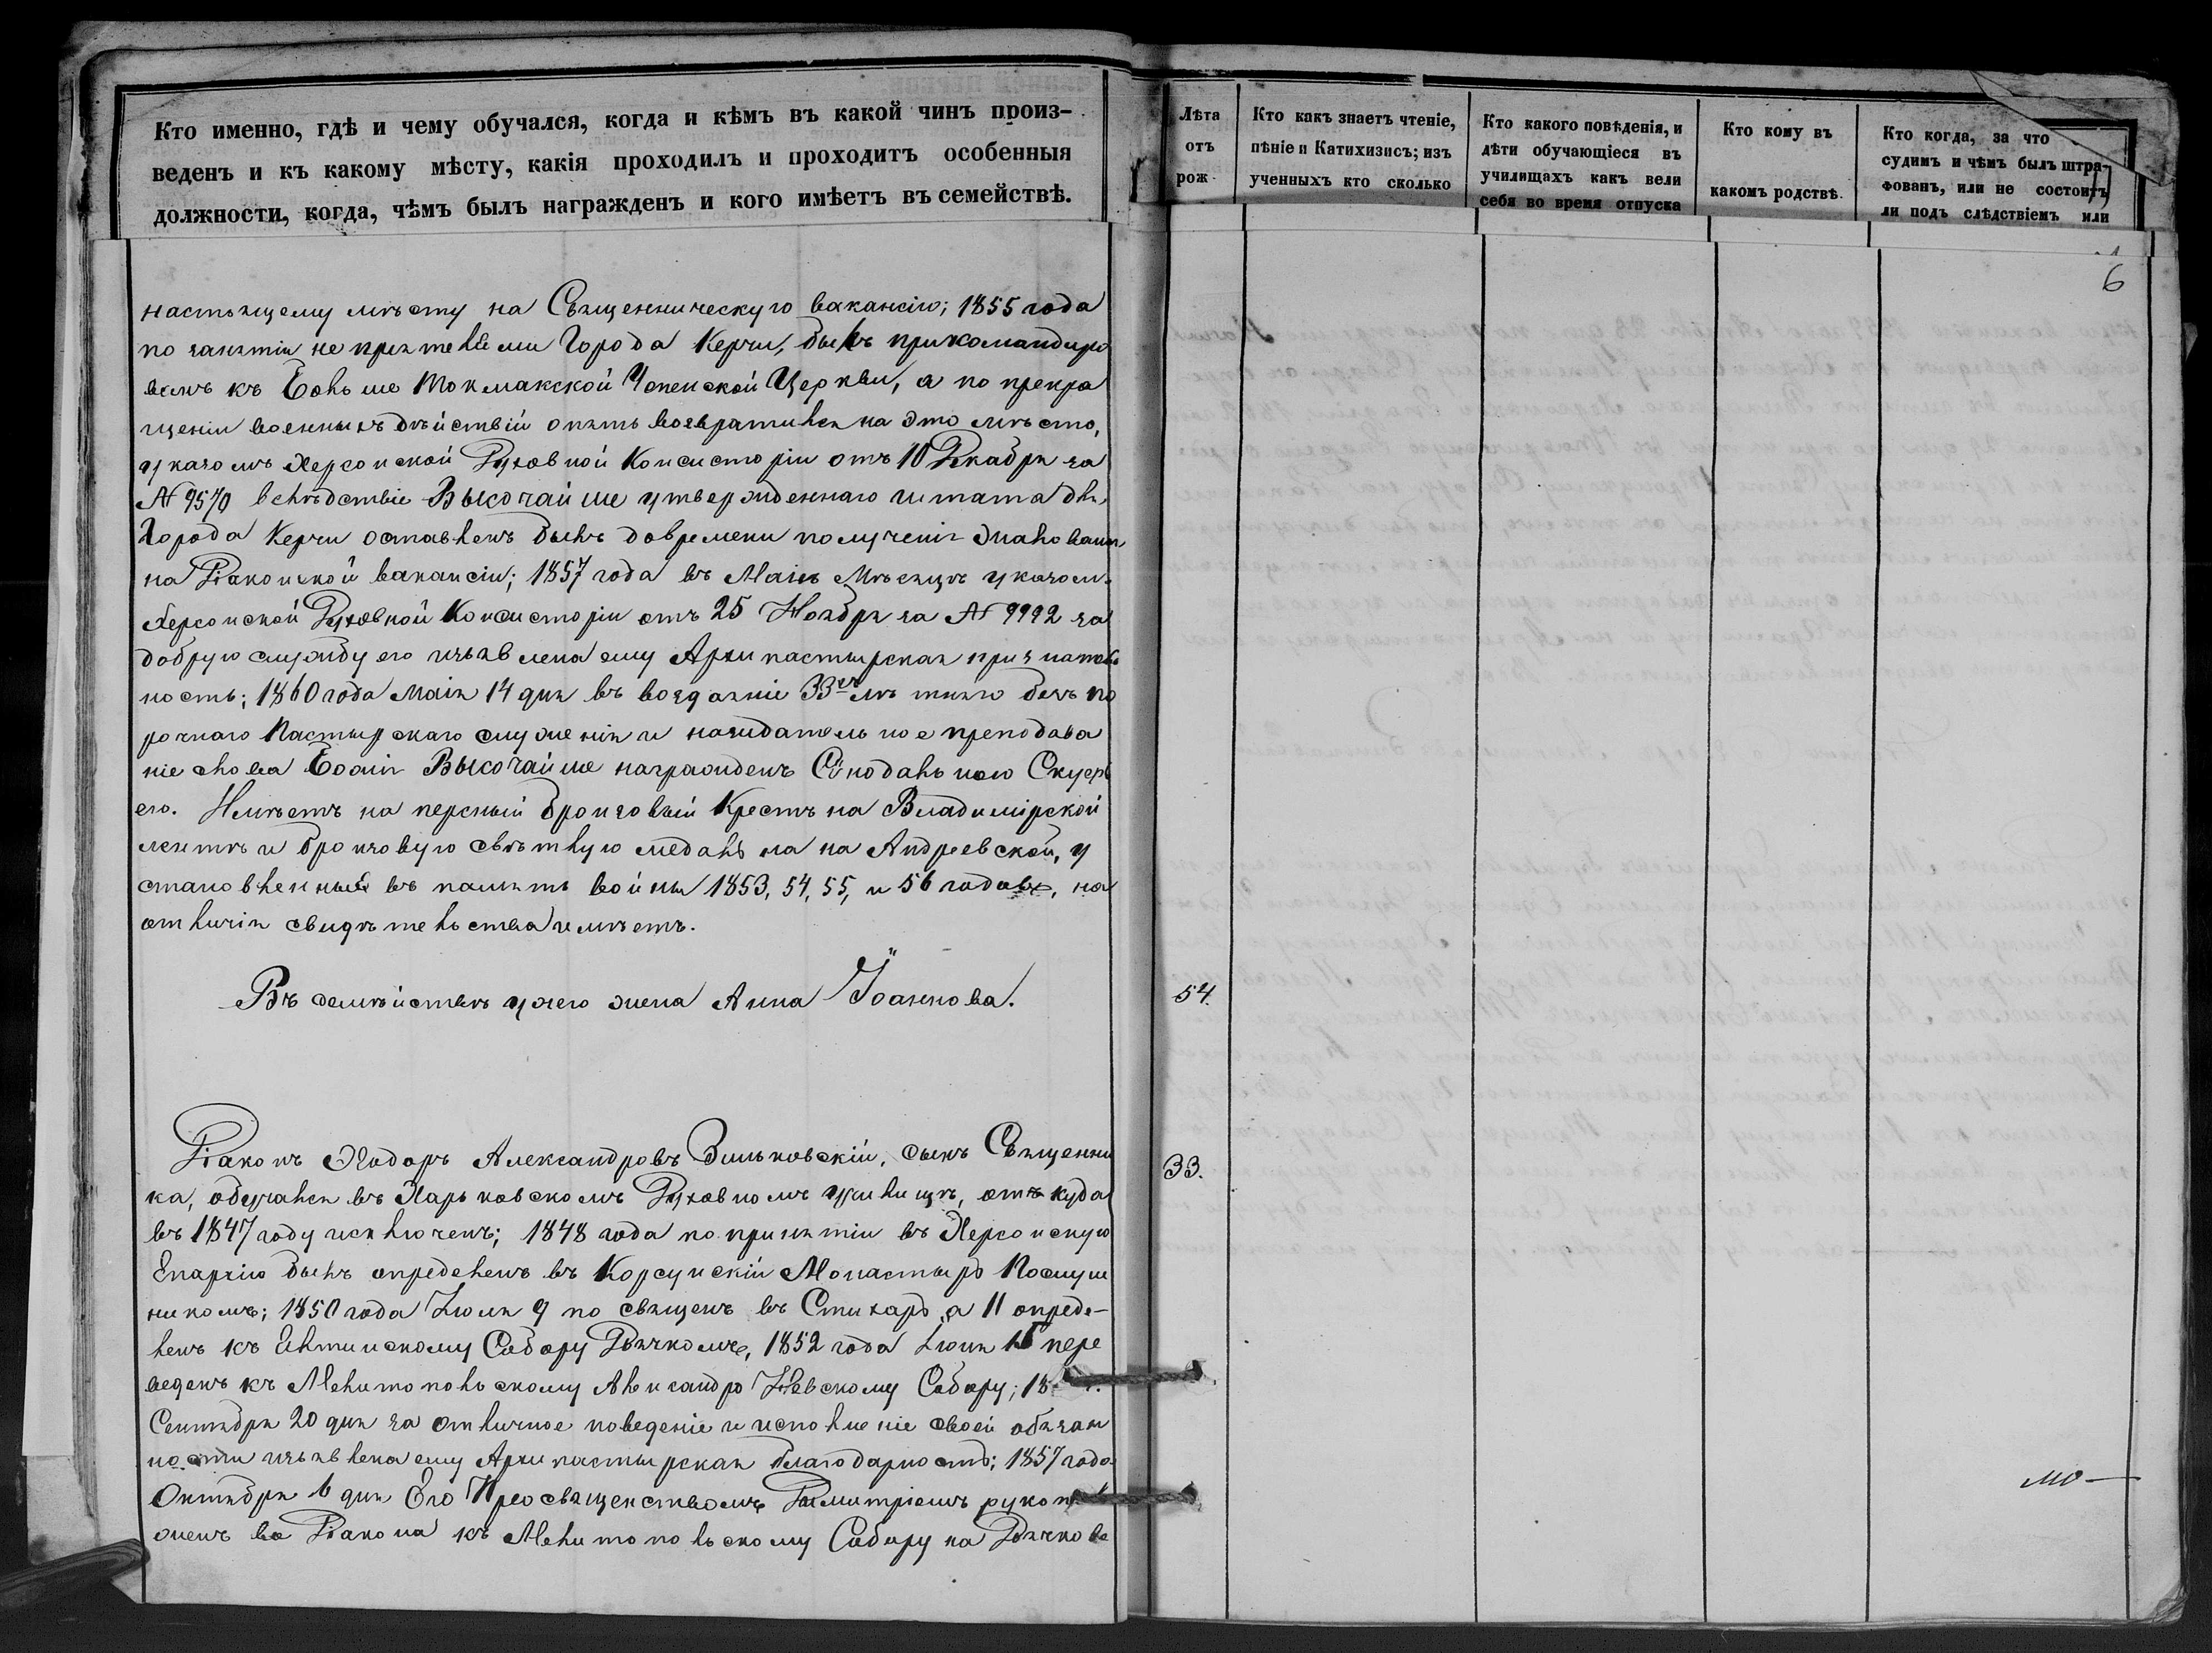 Кто именно, гдѣ и чему обучался, когда и кѣмъ въ какой чинъ произ-
веденъ и къ какому мѣсту, какія проходилъ и проходитъ особенныя
должности, когда, чѣмъ былъ награжденъ и кого имѣетъ въ семействѣ.
настоящему мѣсту на Священническую вакансію; 1855 года
по занятіи непріятелями Города Керчи, былъ прикомандиро
ванъ къ Больше Токмакской Успенской Церкви, а по прекра
щеніи военныхъ дѣйствій опять возвратился на это мѣсто,
указомъ Херсонской Духовной Консисторіи отъ 10 Декабря за
№ 9570 вслѣдствіе Высочайше утвержденнаго штата для
Города Керчи оставленъ былъ до времени полученія жалованья
на Діаконской вакансіи; 1857 года въ Маіѣ Мѣсяцѣ указомъ
Херсонской Духовной Консисторіи отъ 25 Ноября за № 9992 за
добрую службу его изъявлена ему Архипастырская признатель
ность; 1860 года маія 14 дня въ воздаяніе 33хъ лѣтняго безпо
рочнаго Пастырскаго служенія и назидательное преподава
ніе слова Божія Высочайше награжденъ Сѵнодальною Скуфь
ею. Имѣетъ наперсный бронзовый Крестъ на Владимірской
лентѣ и бронзовую свѣтлую медаль на на Андреевской, у
становленный въ память войны 1853, 54, 55, и 56 годовъ, на
отличія свидѣтельства имѣетъ.
Въ семействѣ у него жена Анна Іоаннова.
Діаконъ Ѳеодоръ Александровъ Зиньковскій, сынъ Священни
ка, обучался въ Харьковскомъ Духовномъ училищѣ, откуда
въ 1847 году исключенъ; 1848 года по принятіи въ Херсонскую
Епархію былъ опредѣленъ въ Корсунскій Монастырь Послуш
никомъ; 1850 года Іюля 9 посвященъ въ Стихарь, а 11 опреде-
ленъ къ Собору Дьячкомъ, 1852 года Іюля 15 пере
веденъ къ Мелитопольскому Александро Невскому Собору; 18
Сентября 20 дня за отличное поведеніе и исполненіе своей обязан
ности изъявлена ему Архипастырская благодарность; 1857 года
Октября 6 дня Его Преосвященствомъ Димитріемъ рукопо
женъ во Діакона къ Мелитопольскому Собору на Дьячков
Лѣта
отъ
рож
Кто какъ знаетъ чтеніе,
пѣніе и Катихизисъ; изъ
ученныхъ кто сколько
Кто какого поведенія, и
дѣти обучающіеся въ
училищахъ какъ вели
себя во время отпуска
Кто кому въ
какомъ родствѣ.
Кто когда, за что
судимъ и чѣмъ былъ штра-
фованъ, или не состоитъ
ли подъ слѣдствіемъ или
6
54.
33.